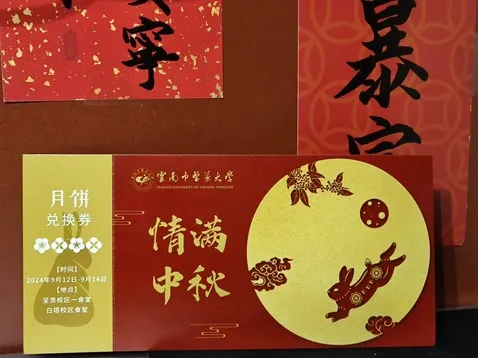 寧
泰
月饼
兑换券
【时间】
2024年9月12日-9月14日
【地点】
呈贡校区一食堂
白塔校区食堂
雲南中醫藥大學
YUNNAN UNIVERSITY OF CHINESE MEDICINE
情满
中秋